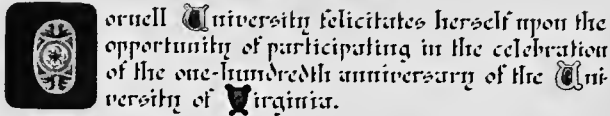 Cornell University felicitates herself upon the
opportunity of participating in the celebration
of the one-hundredth anniversary of the Uni-
versity of Virginia.